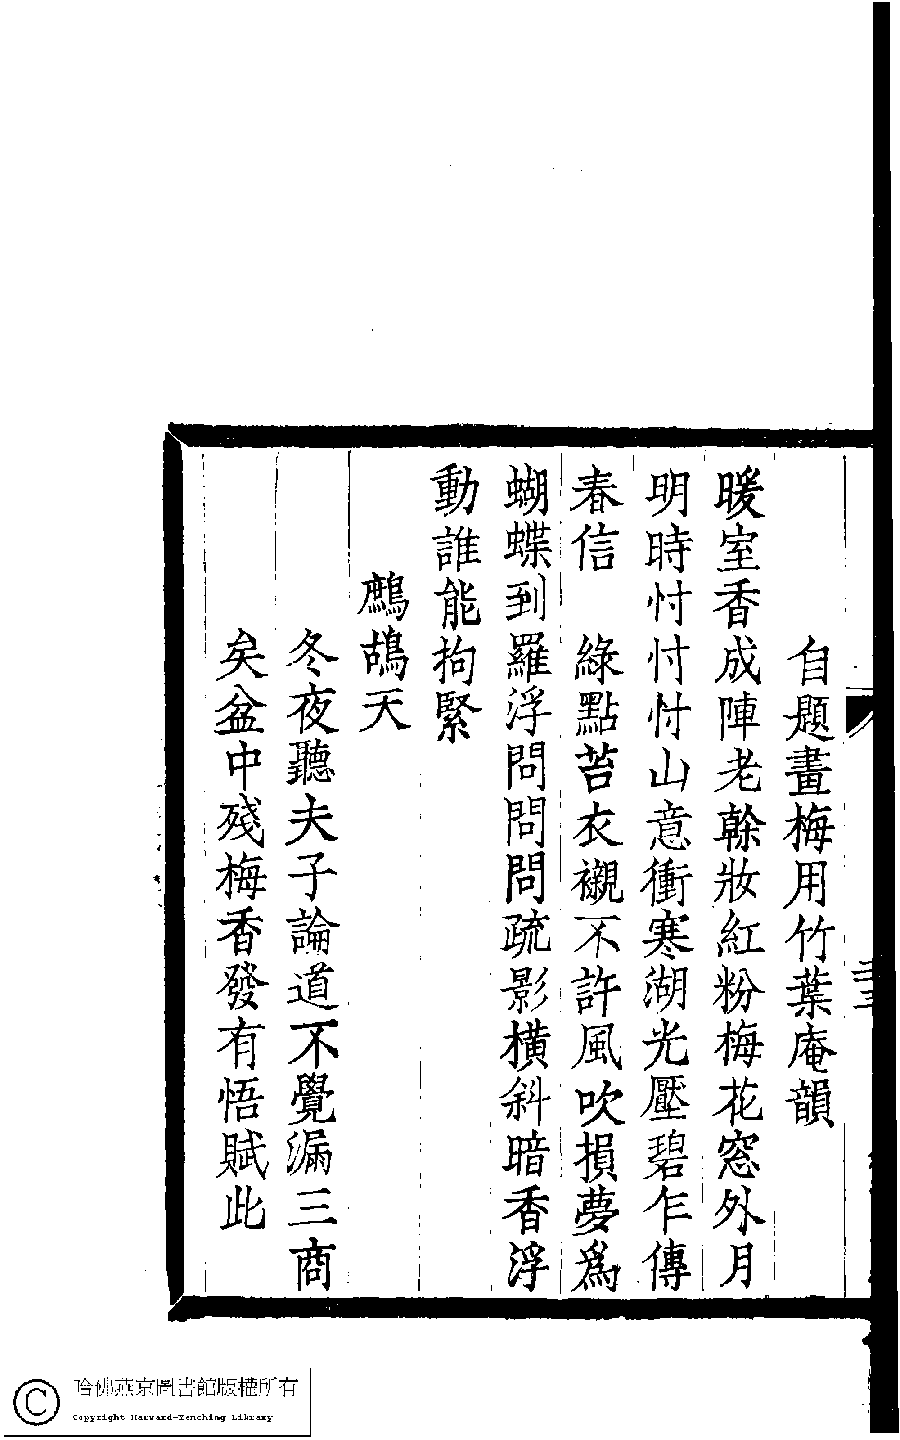 自題畫梅用竹葉庵韻
暖室香成陣老榦妝紅粉梅花窓外月
明時忖忖忖山意衝寒湖光壓碧乍傳
春信　綠點苔衣襯不許風吹損夢爲
蝴蝶到羅浮問問問疏影橫斜暗香浮
動誰能拘緊
鷓鴣天
冬夜聽夫子論道不覺漏三商
矣盆中殘梅香發有悟賦此
哈佛燕京圖書館版權所有
Copyright Harvard-Yenching Library